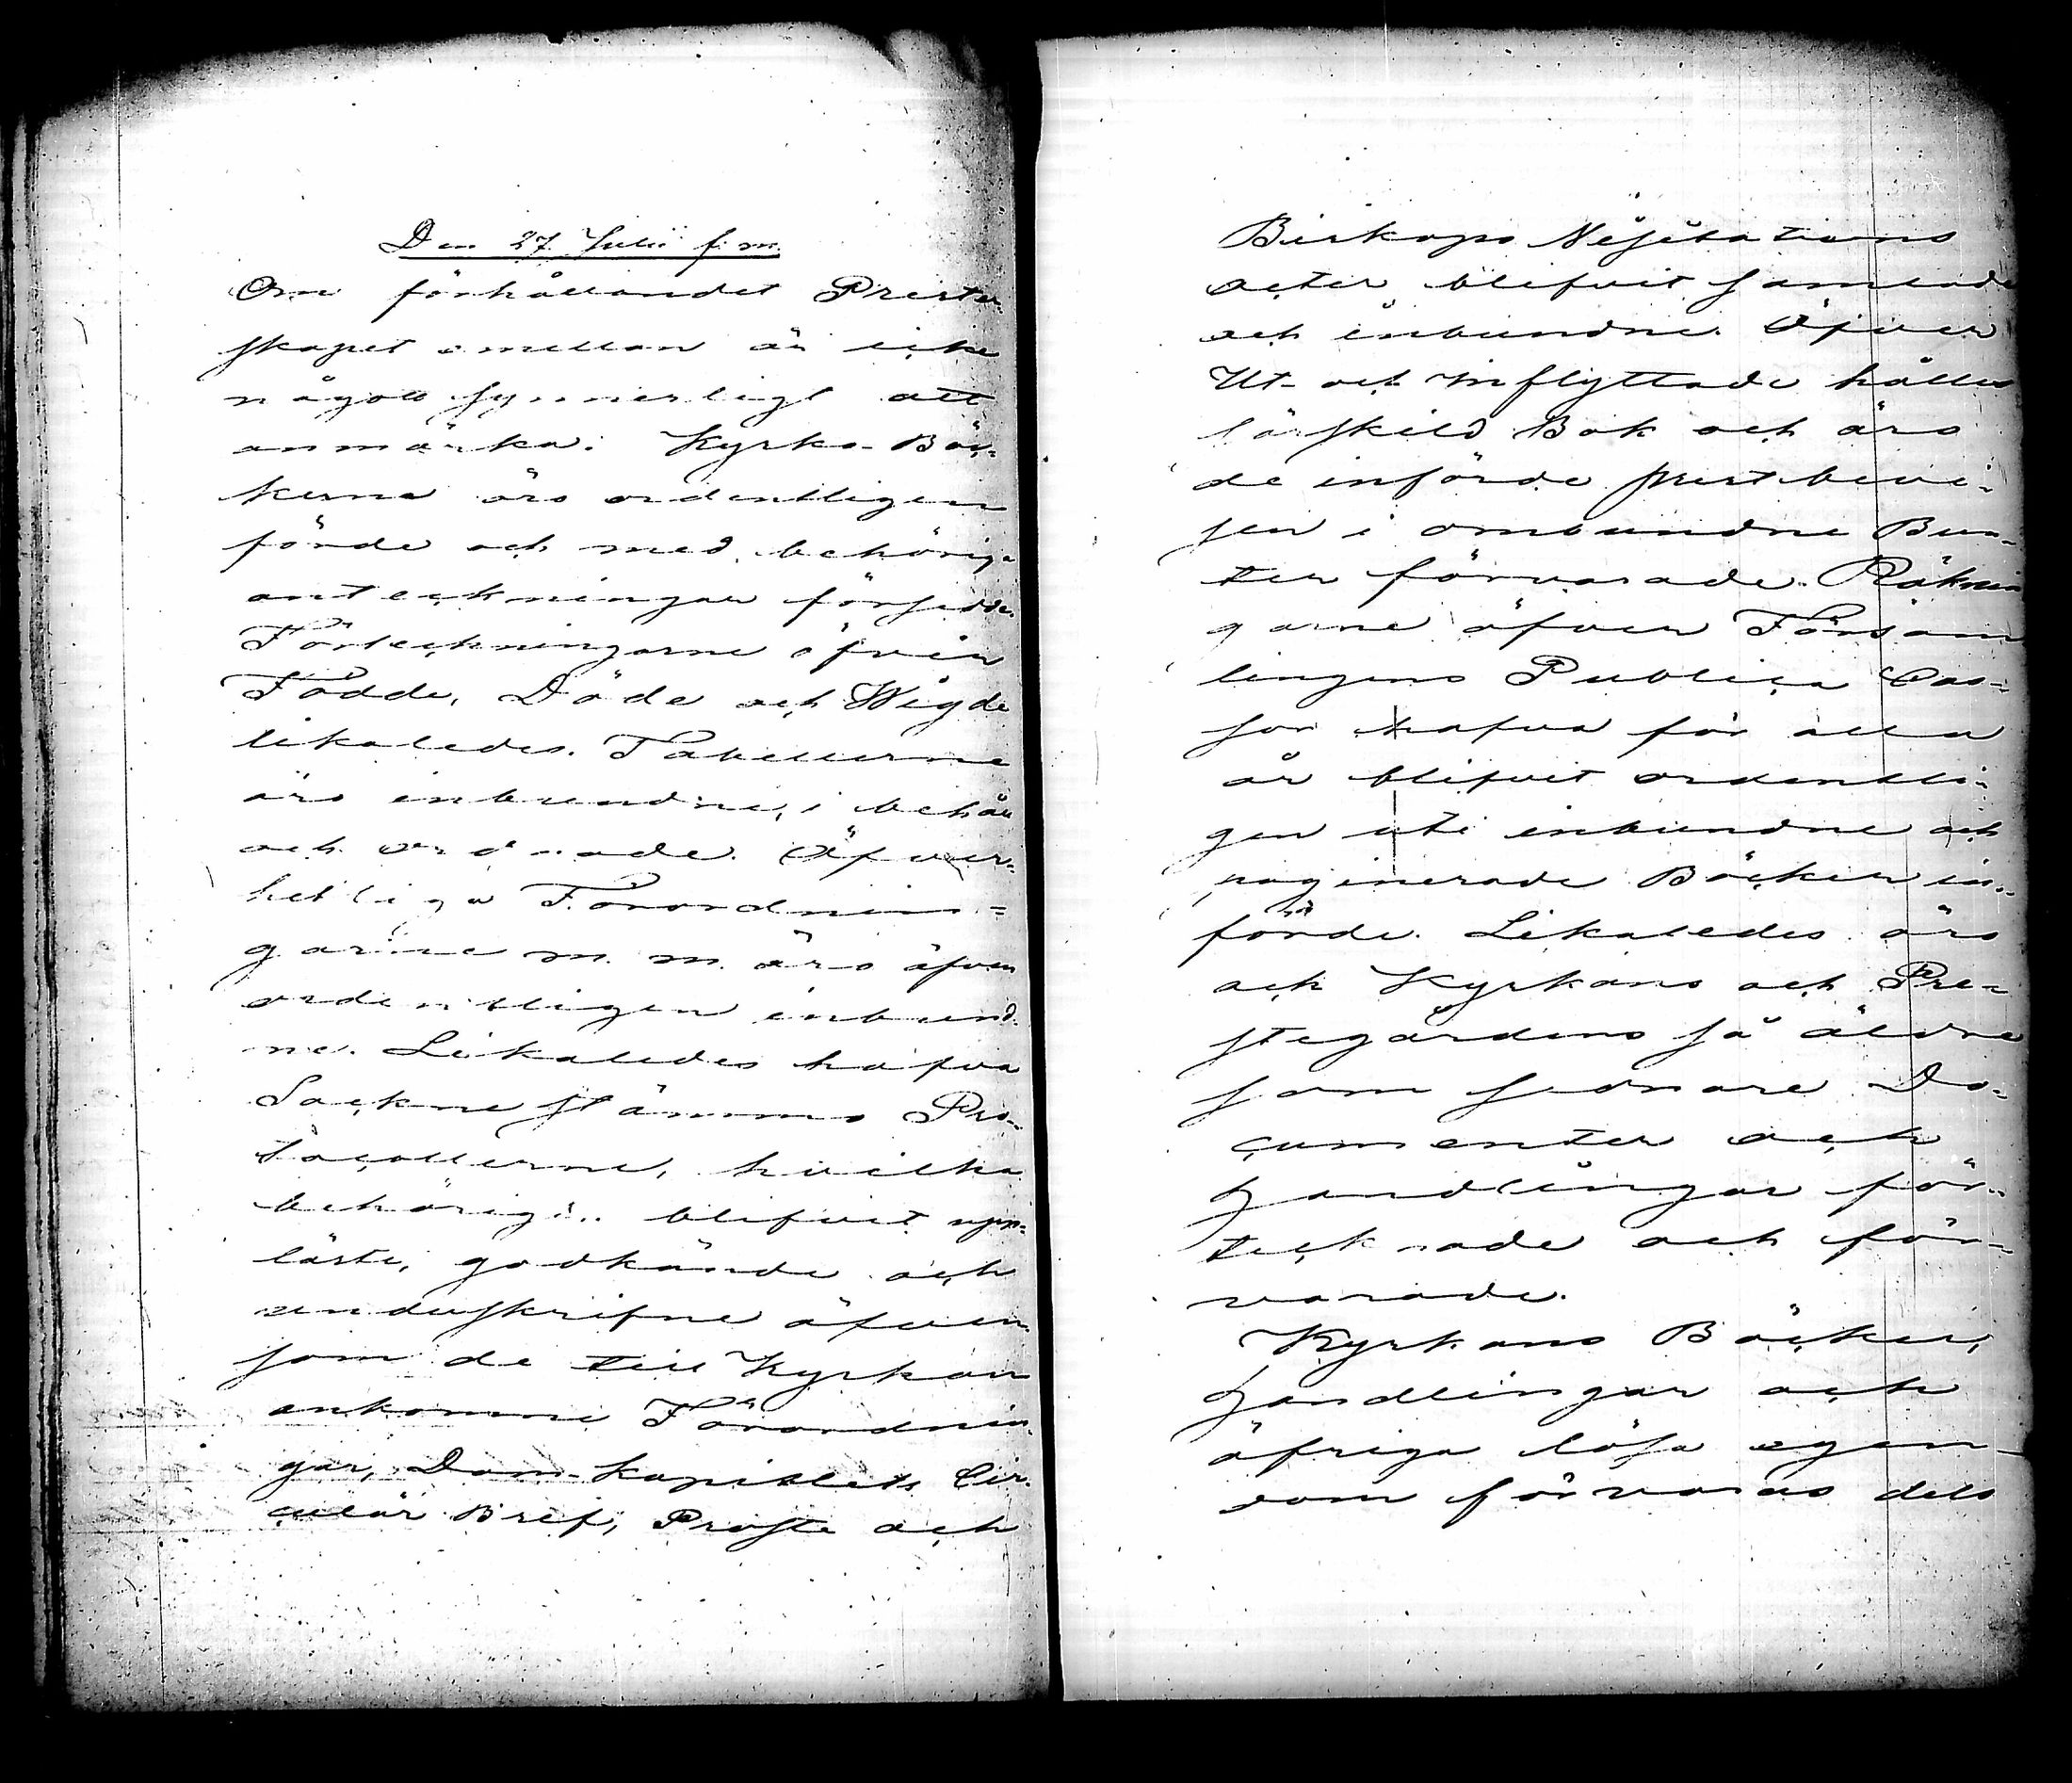 Den 27 Julii f. m.
Om förhållandet Prester-
skapet emellan är icke
något synnerligt att
anmärka. Kyrko-Böc-
kerna äro ordentligen
förde och med behöriga
anteckningar försedde.
Förteckningarne öfver
Födde, Döde och Wigde
likaledes. Tabellerne
äro inbundne, i behåll
och ordnade. Öfver-
hetliga Förordnin=
garne m. m. äro äfven
ordentligen inbund-
ne. Likaledes hafva
Sockne stämmo Pro-
tocollerne, hvilka
behörigen blifvit upp-
läste, godkände och
underskrifne äfven
som de till Kyrkan
ankomne Förordnin-
gar, Dom-Kapitlets Cir-
culär Bref, Proste och
Biskops Visitations
acter blifvit samlade
och inbundne. Öfver
Ut- och Inflyttade hålles
särskild Bok och äro
de införde prestbevi-
sen i ombundne Bun-
ter förvarade. Räknin
garne öfver Försam
lingens Publica Cas-
sor hafva för alla
år blifvit ordentli-
gen uti inbundne och
paginerade Böcker in-
förde. Likaledes äro
ock Kyrkans och Pre-
stegårdens så äldre
som sednare Do-
cumenter och
Handlingar för-
tecknade och för-
varade.
Kyrkans Böcker,
Handlingar och
öfriga lösa egen-
dom förvaras dels